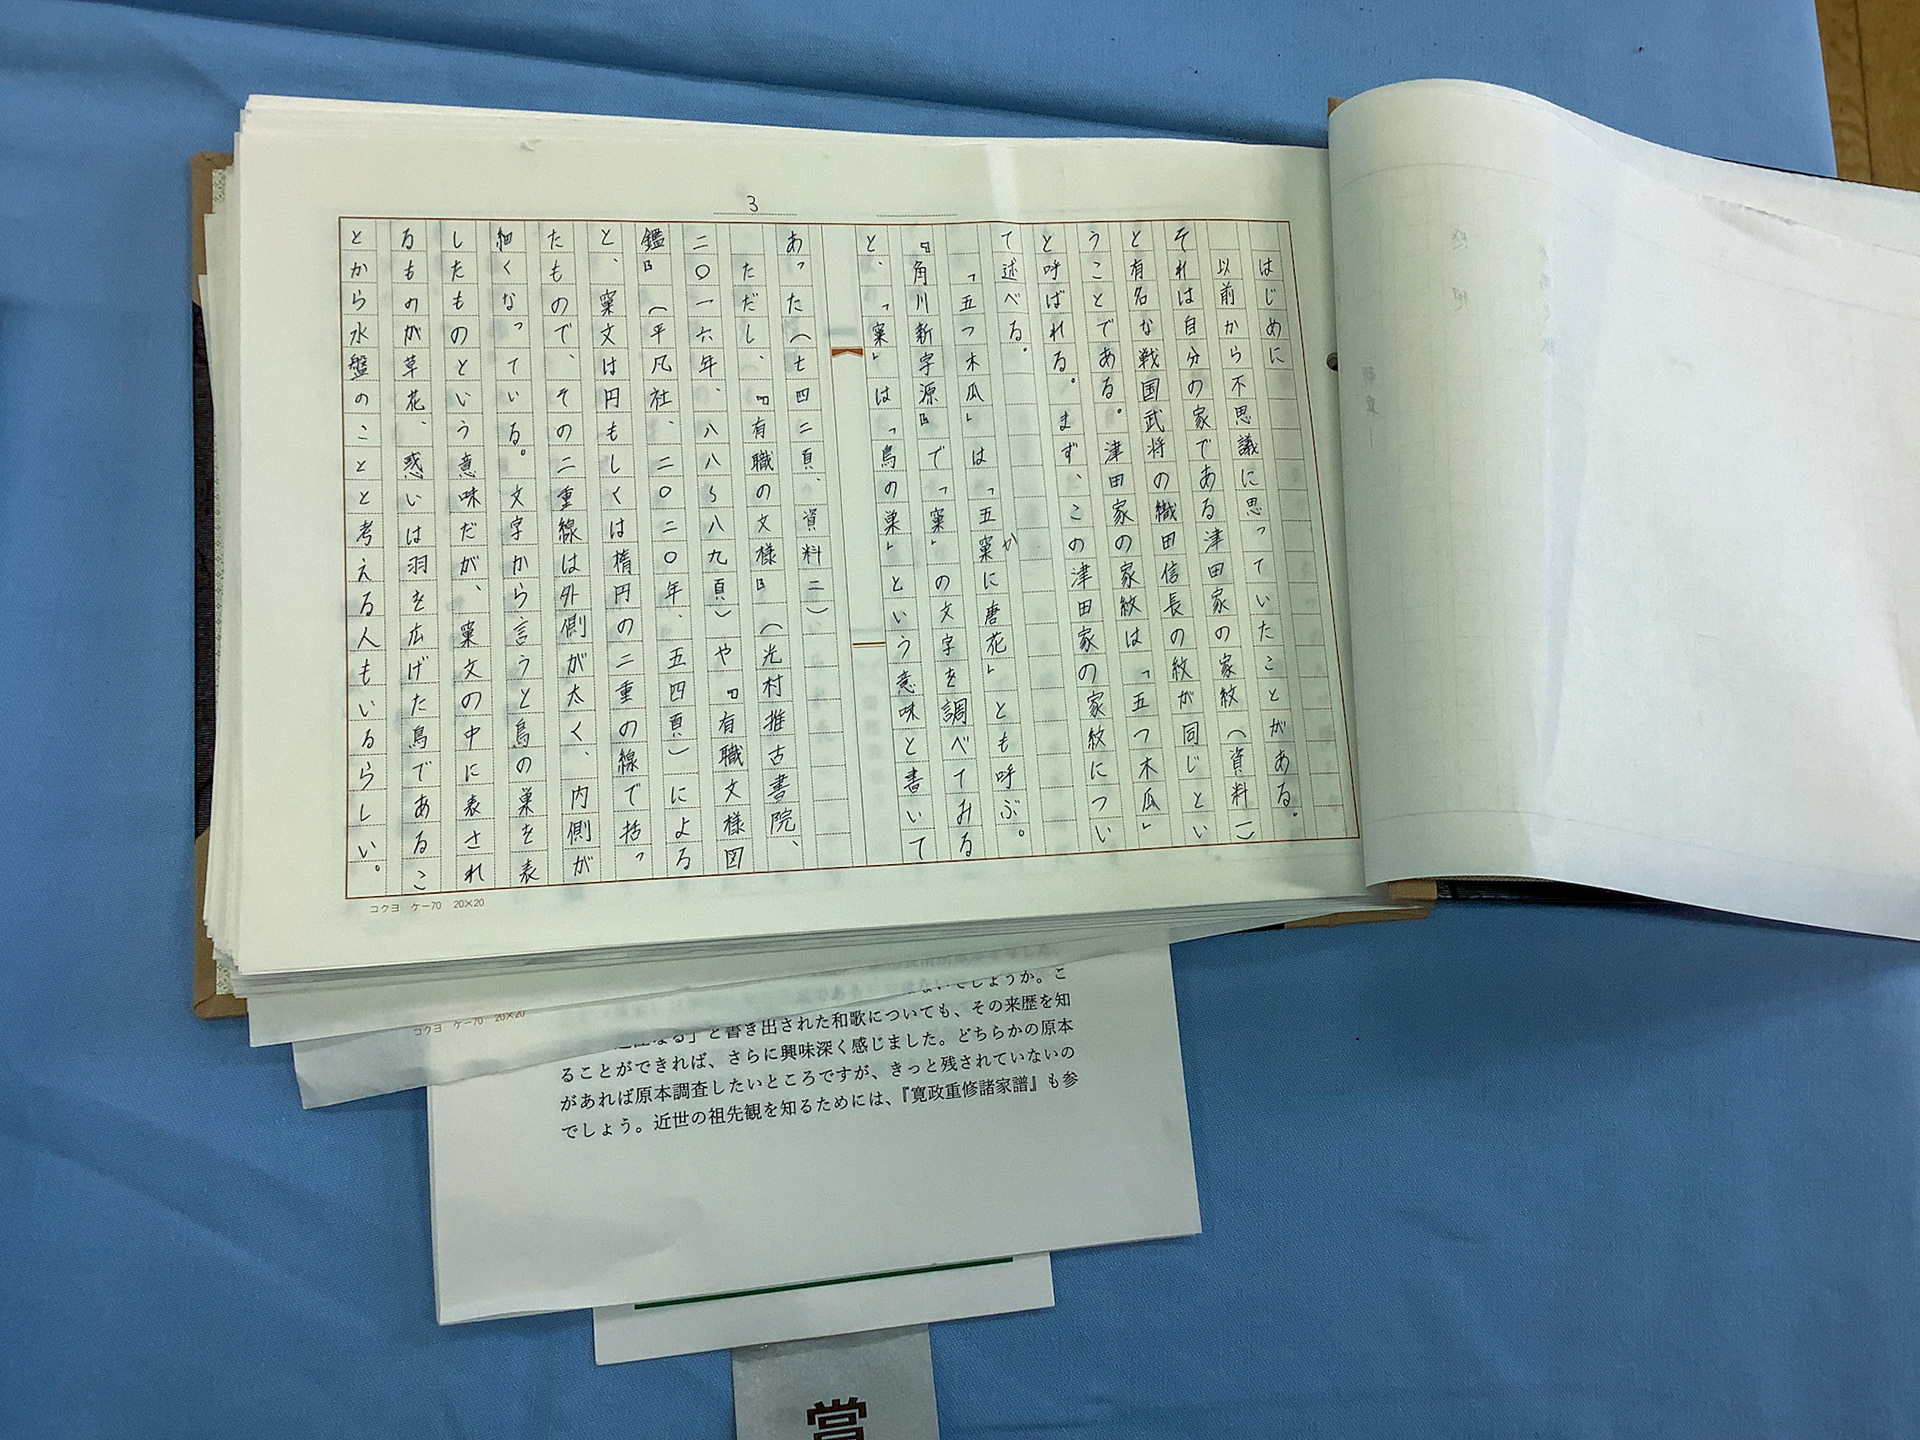 3
はじめに
以前から不思議に思っていたことがある。
それは自分の家である津田家の家紋（資料一）
と有名な戦国武将の織田信長の紋が同じとい
うことである。津田家の家紋は「五つ木瓜」
と呼ばれる。まず、この津田家の家紋につい
て述べる。
「五つ木瓜」は「五窠に唐花」とも呼ぶ。
か
『角川新字源』で「窠」の文字を調べてみる
と、「窠」は「鳥の巣」という意味と書いて
あった（七四二頁、資料二）。
ただし、『有職の文様』（光村推古書院、
二〇一六年、八八〜八九頁）や『有職文様図
鑑』（平凡社、二〇二〇年、五四頁）による
と、窠文は円もしくは楕円の二重の線で括っ
たもので、その二重線は外側が太く、内側が
細くなっている。文字から言うと鳥の巣を表
したものという意味だが、窠文の中に表され
るものが草花、惑いは羽を広げた鳥であるこ
とから水盤のことと考える人もいるらしい。
コクヨ ケー70 20×20
コクヨ ケー70 20×20
ないでしょうか。こ
なる」と書き出された和歌についても、その来歴を知
ることができれば、さらに興味深く感じました。どちらかの原本
があれば原本調査したいところですが、きっと残されていないの
でしょう。近世の祖先観を知るためには、『寛政重修諸家譜』も参
賞